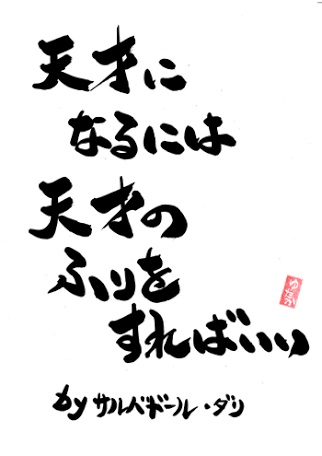 天才に
なるには
天才の
ふりを
すればいい
ゆたか
by サルバドール・ダリ